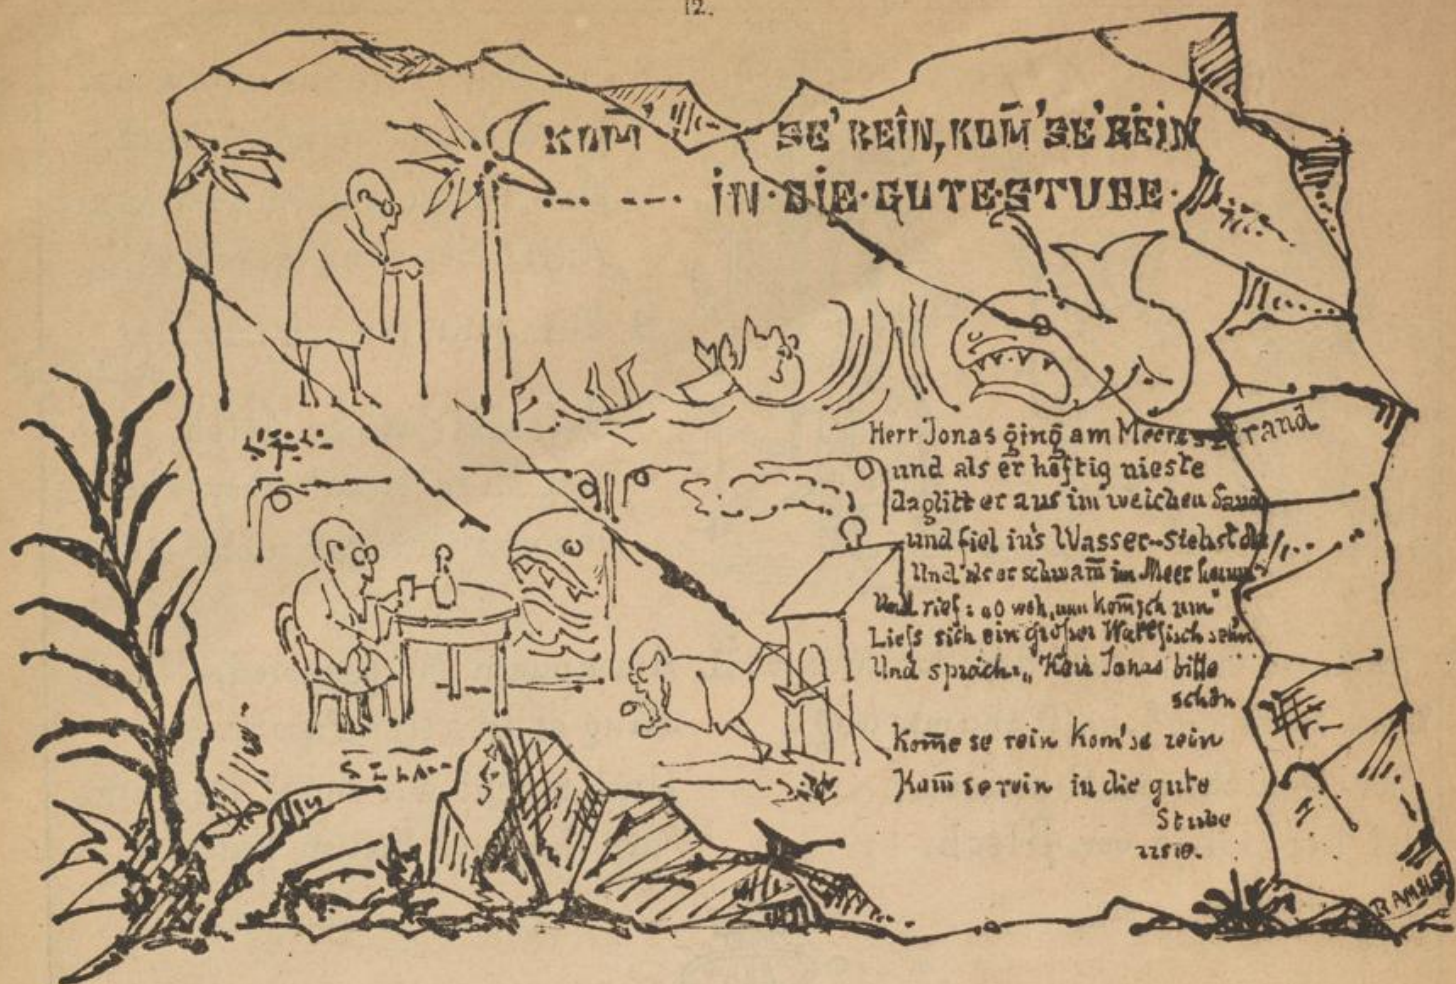 12.
KOM̄' SE' REIN, KOM̄' SE' REIN
IN · DIE · GUTE · STUBE ·
Herr Jonas ging am Meeresstrand
und als er heftig nieste
da glitt er aus im weichen Sand
und fiel in's Wasser - siehst du
Und er schwam̄ im Meer
Und rief: "O weh, nun kom̄ ich um"
Liess sich ein grosser Wallfisch sehn
Und sprach: "Herr Jonas bitte
schön
Kom̄e se rein Kom̄'se rein
Kom̄ se rein in die gute
Stube